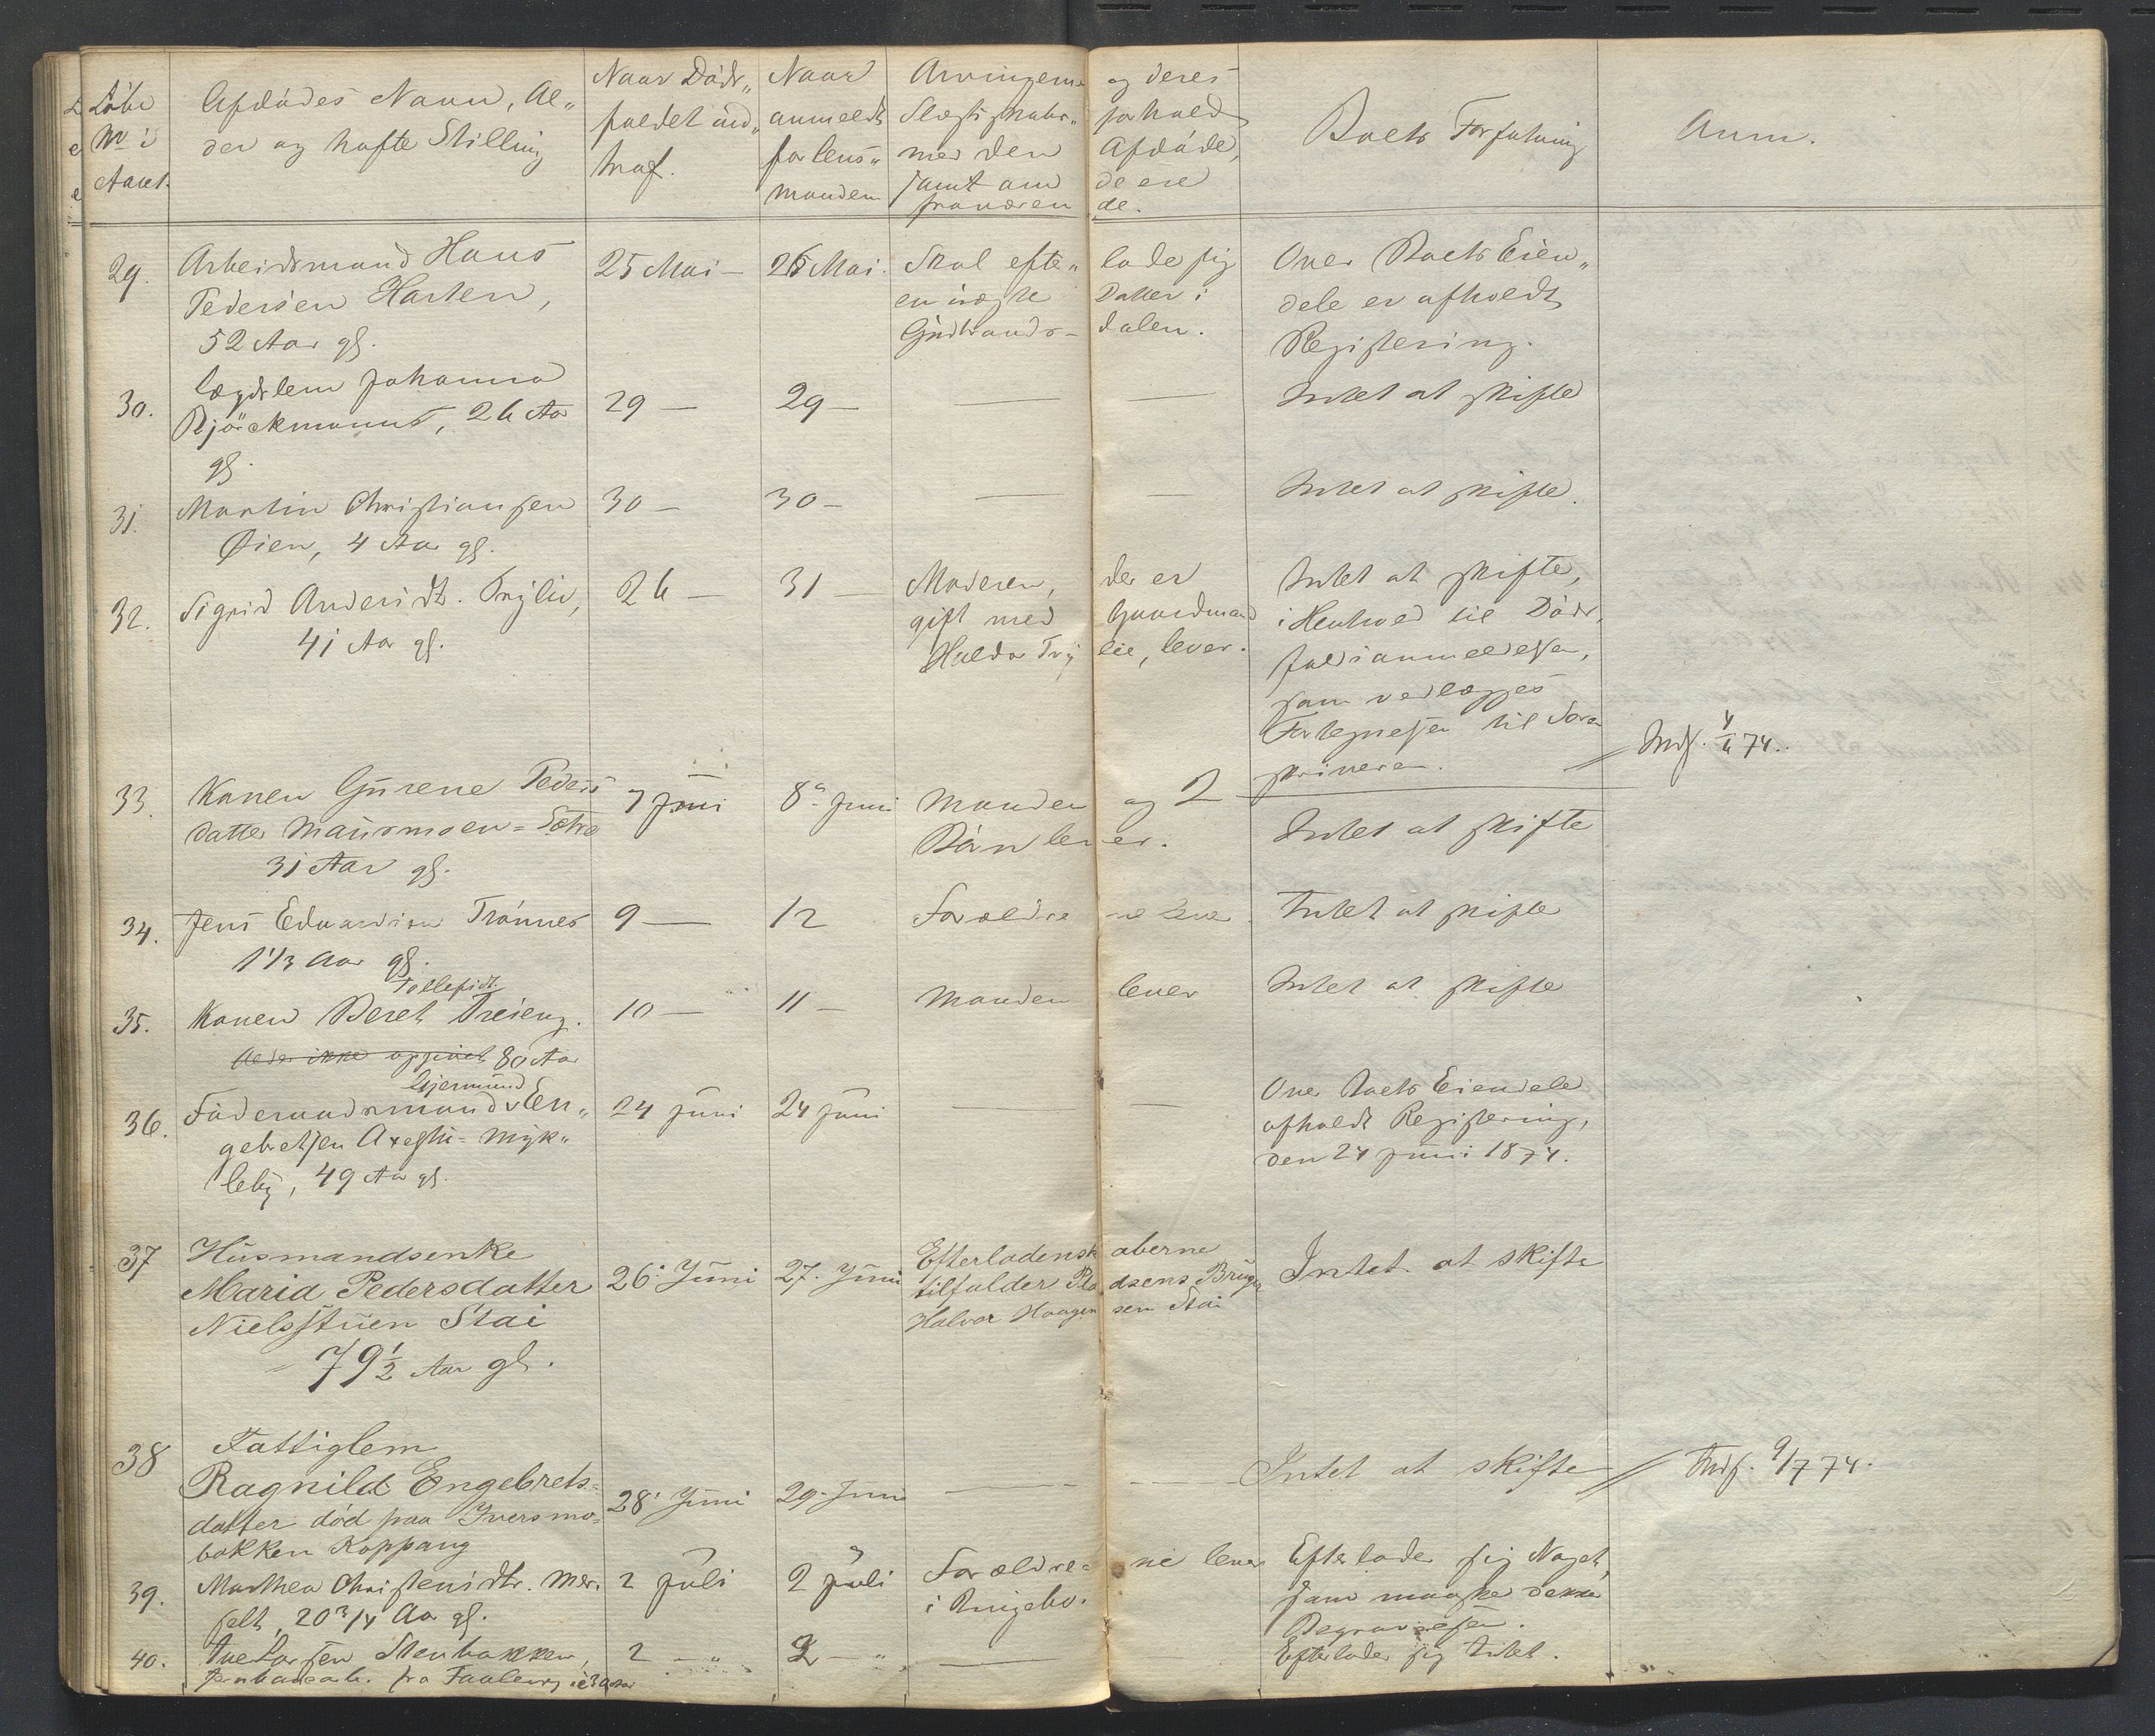 Löbe
No i
Aaret.
Afdödes Navn, Al„
der og hafte Stilling
Naar Döds„
faldet ind„
traf.
Naar
anmeldt
for lens„
manden
Arvingerne og deres
Slægtskabs„ forhold
med den Afdöde,
samt om de ere
fraværende.
Boets Forfatning
Anm.
29.
Arbeidsmand Hans
Pedersen Harten,
52 Aar gl.
25 Mai —
26 Mai.
Skal efter„ lade sig
en uægte Datter i
Gudbrands- dalen.
Over Boets Eien„
dele er afholdt
Registering.
30.
Lægdslem Johanna
Bjöckmanns, 26 Aar
gl.
29 —
29 —
— —
Intet at skifte
31.
Martin Christiansen
Öien, 4 Aar gl.
30 —
30 —
— —
Intet at skifte.
32.
Sigrid Andersdt. Trylie,
41 Aar gl.
26 —
31 —
Moderen, der er
gift med Gaardmand
Haldor Trylie, lever.
Intet at skifte,
i Henhold til Döds„
faldsanmeldelsen,
som vedlægges
Fortegnelsen til Soren
skriveren.
Inds. 4/6 74.
33.
Konen Gurene Peders
datter Maurmoen=Sætre
31 Aar gl.
7 Juni
8de Juni
Manden og 2
Börn lever.
Intet at skifte
34.
Jens Edvardsen Trönnes
1 1/3 Aar gl.
9 —
12
Forældrene lever.
Intet at skifte
35.
Tollefsdt.
Konen Beret Treieng.
Alder ikke opgivet 80 Aar
10 —
11 —
Manden lever
Intet at skifte
36.
Gjermund
Föderaadsmand En„
gebretsen Axeslie= Myk„
leby, 49 Aar gl.
24 Juni
24 Juni
— —
Over Boets Eiendele
afholdt Registering,
den 24 Juni 1874.
37
Husmandsenke
Maria Pedersdatter
Nielsstuen Stai
79 1/2 Aar gl.
26. Juni
27. Juni
Efterladenskaberne
tilfalder Pladsens Bruger
Halvor Haagensen Stai
Intet at skifte
38
Fattiglem
Ragnild Engebrets=
datter död paa Iversmo=
bakken Koppang
28. Juni
29. Juni
— —
Intet at skifte
Inds. 9/7 74.
39.
Marthea Christensdtr. Mes„
selt, 20 3/4 Aar gl.
2 Juli
2 Juli
Forældre= ne lever
i Ringebo.
Efterlader sig Noget,
som maaske dække
Begravelsen.
40.
Ive Larsen Stenbakken,
fra Faaberg
2 — „
2 — „
—
Efterlader sig Intet.